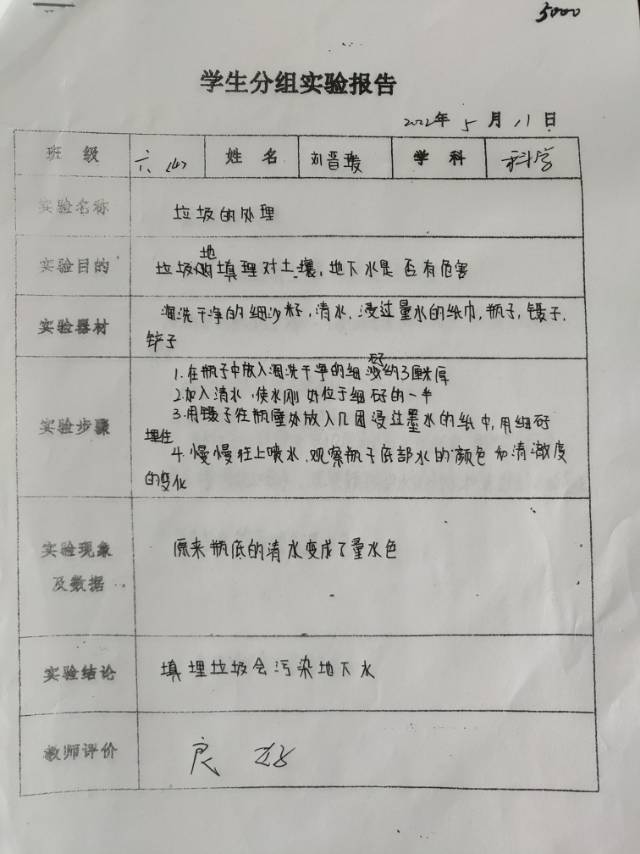 5000
学生分组实验报告
2022年 5 月 11 日
班 级 六 姓 名 刘晋瑷 学 科 科学
实验名称 垃圾的处理
地
实验目的 垃圾的填理对土壤,地下水是否有危害
实验器材 淘洗干净的细沙籽,清水,浸过量水的纸巾,瓶子,镊子,
铲子
实验步骤
1.在瓶子中放入淘洗干净的细沙约3厘米厚
2.加入清水,使水刚好位于细砂的一半
3.用镊子在瓶壁处放入几团浸过墨水的纸巾,用细砂
埋住
4.慢慢往上喷水,观察瓶子底部水的颜色和清澈度
的变化
实验现象
及数据
原来瓶底的清水变成了量水色
实验结论 填埋垃圾会污染地下水
教师评价 良好